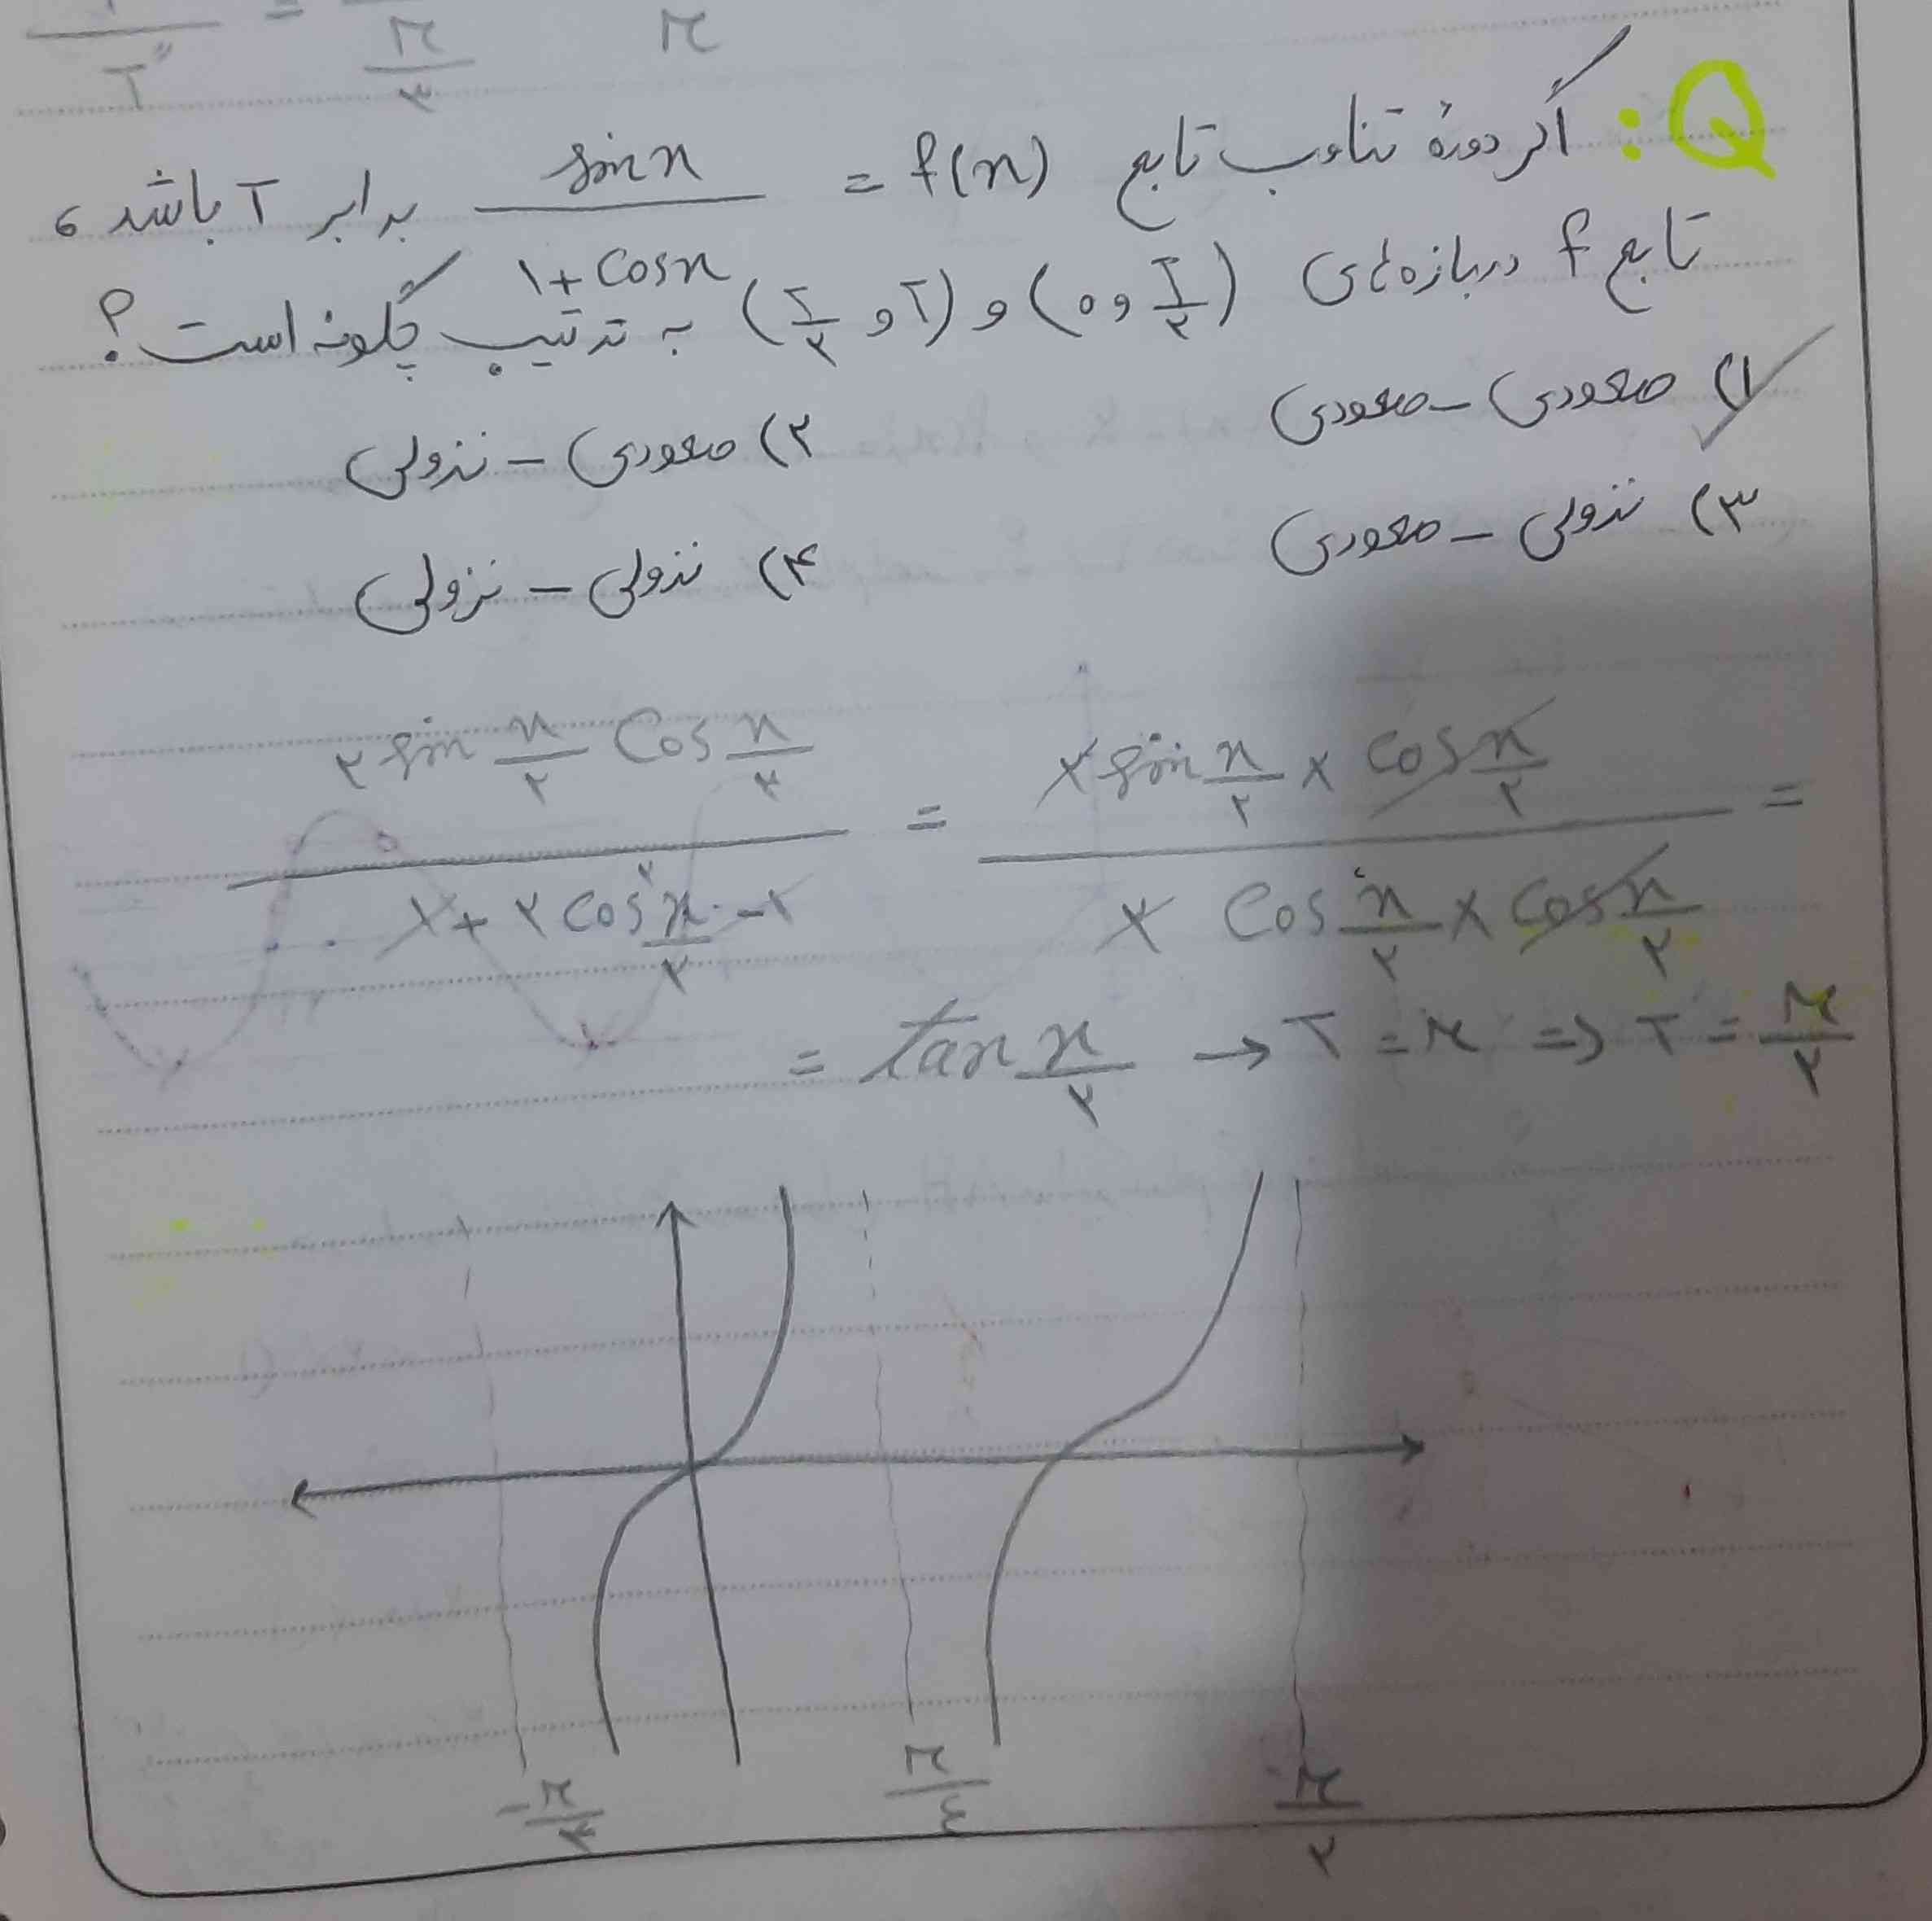 T" = π/۳ π
Q: اگر دورهٔ تناوب تابع f(x) = sin x / ۱+cos x برابر T باشد،
تابع f در بازه‌های (۰ و T/۲) و (T/۲ و T) به ترتیب چگونه است؟
۱) صعودی – صعودی ۲) صعودی – نزولی
۳) نزولی – صعودی ۴) نزولی – نزولی
۲ sin x/۲ cos x/۲ / ۱ + ۲ cos² x/۲ - ۱ = ۲ sin x/۲ × cos x/۲ / ۲ cos x/۲ × cos x/۲ =
= tan x/۲ → T = π ⇒ T = π/۲
-π/۴ π/٤ π/۲